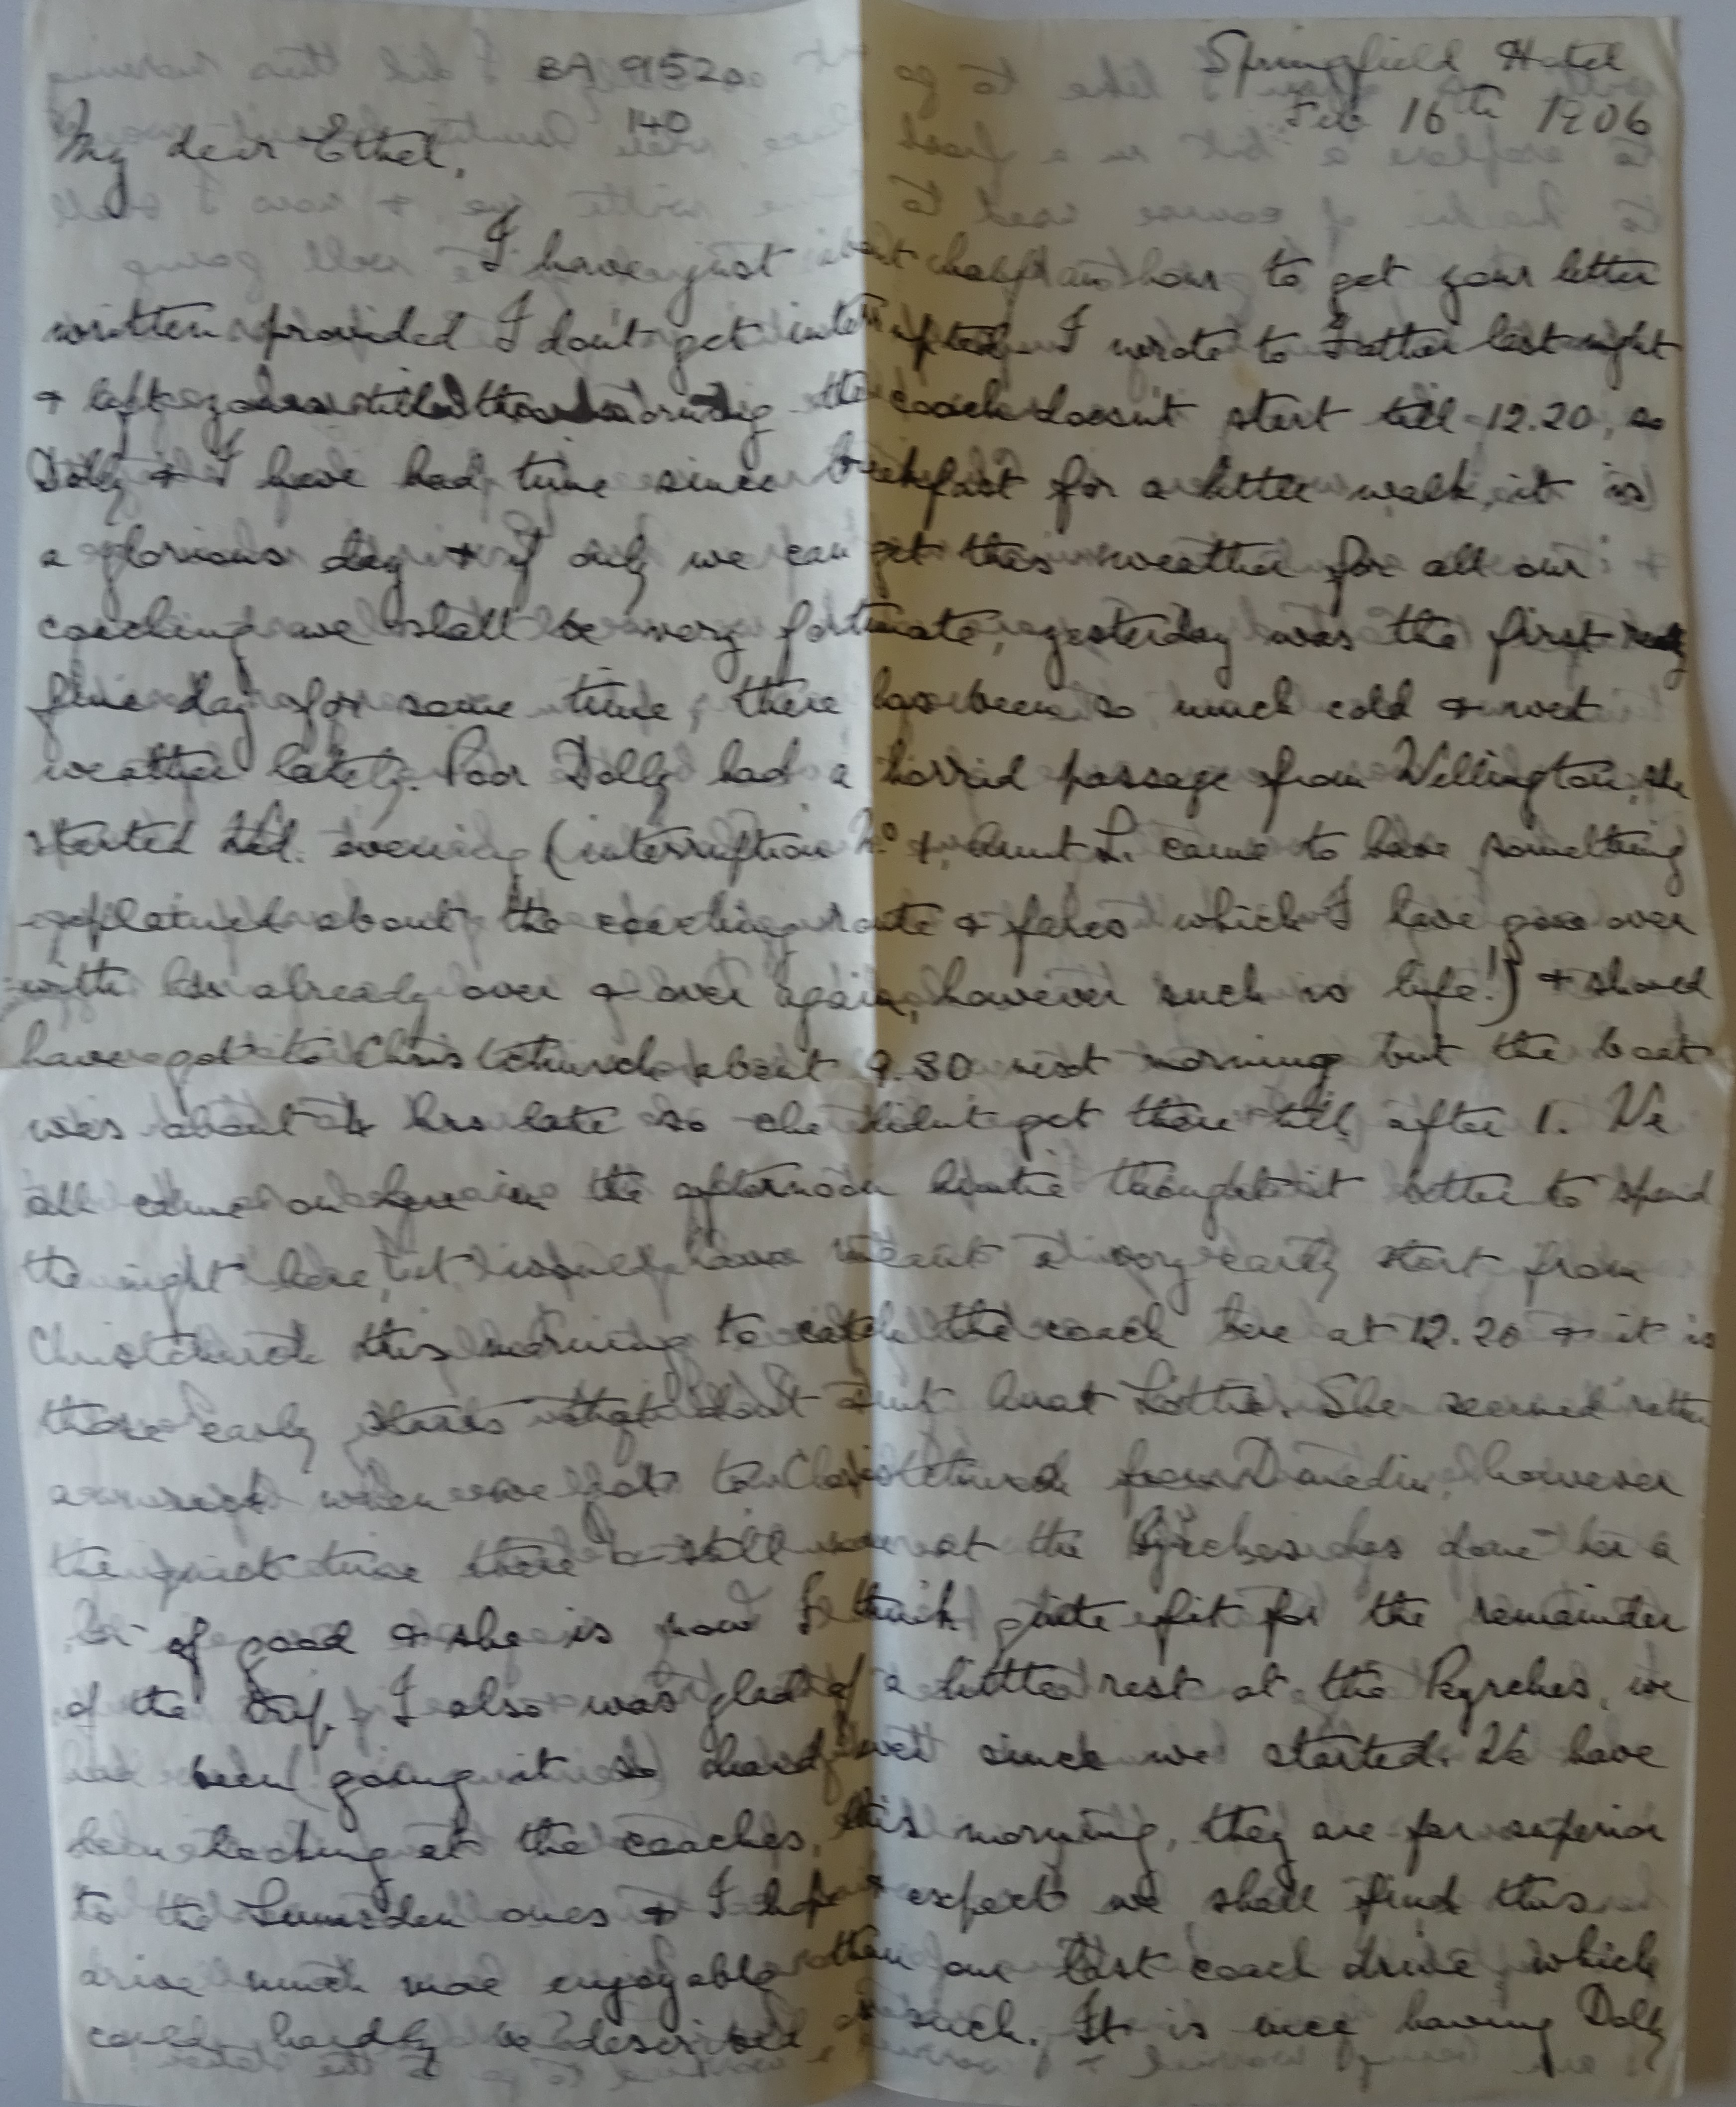 Springfield Hotel
BA 9152
Feb 16th 1906
140
My dear Ethel,
I have just about half an hour to get your letter
written provided I don't get interrupted. I wrote to Father last night
& left yours till this morning the coach doesn't start till 12.20, so
Dolly & I have had time since breakfast for a little walk, it is
a glorious day & if only we can get this weather for all our
coaching we shall be very fortunate, yesterday was the first really
fine day for some time, there has been so much cold & wet
weather lately. Poor Dolly had a horrid passage from Wellington, she
started Wed. evening (interruption No 1, Aunt L. came to have something
explained about the coaching route & fares which I have gone over
with her already over & over again, however such is life!) & should
have got to Christchurch about 9.30 next morning but the boat
was about 4 hrs late so she didn't get there till after 1. We
all came on here in the afternoon Auntie thought it better to spend
the night here, it would have meant a very early start from
Christchurch this morning to catch the coach here at 12.20 & it is
those early starts that don't suit Aunt Lottie. She seemed rather
when we got to Christchurch from Dunedin, however
the quiet time there & still more at the Peyches has done her a
lot of good & she is now I think quite fit for the remainder
of the trip. I also was glad of a little rest at the Peyches, we
had been going it so hard ever since we started. We have
been looking at the coaches this morning, they are far superior
to the Lumsden ones & I hope & expect we shall find this
drive much more enjoyable than our last coach drive, which
could hardly be described as such. It is nice having Dolly